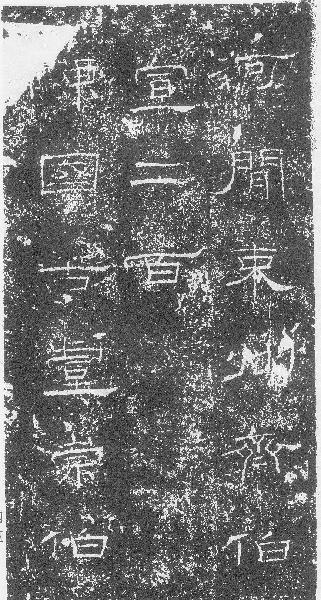 河間東州齊伯
宣二百
陳國苦崇伯